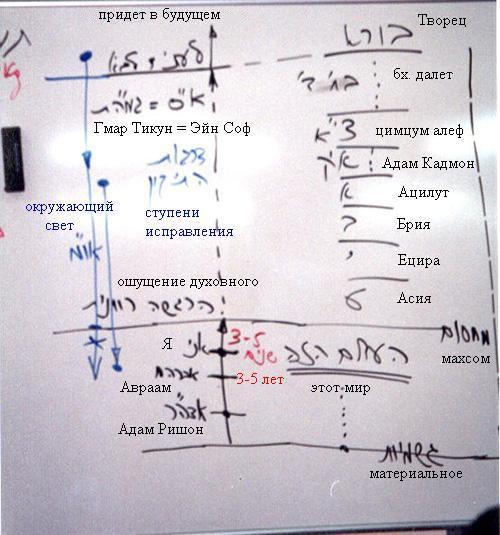 придет в будущем
Творец
בורא
לעתיד לבוא
בח' ד'
бх. далет
א"ס = גמה"ת
Гмар Тикун = Эйн Соф
צ"א
цимцум алеф
א"ק
Адам Кадмон
דרגות
התיקון
א
Ацилут
окружающий
свет
ступени
исправления
ב
Брия
או"מ
י
Ецира
ощущение духовного
הרגשה רוחנית
ע
Асия
מחסום
махсом
Я
אני
3-5
שנים
העולם הזה
אברהם
3-5 лет
Авраам
этот мир
אדה"ר
Адам Ришон
גשמיות
материальное